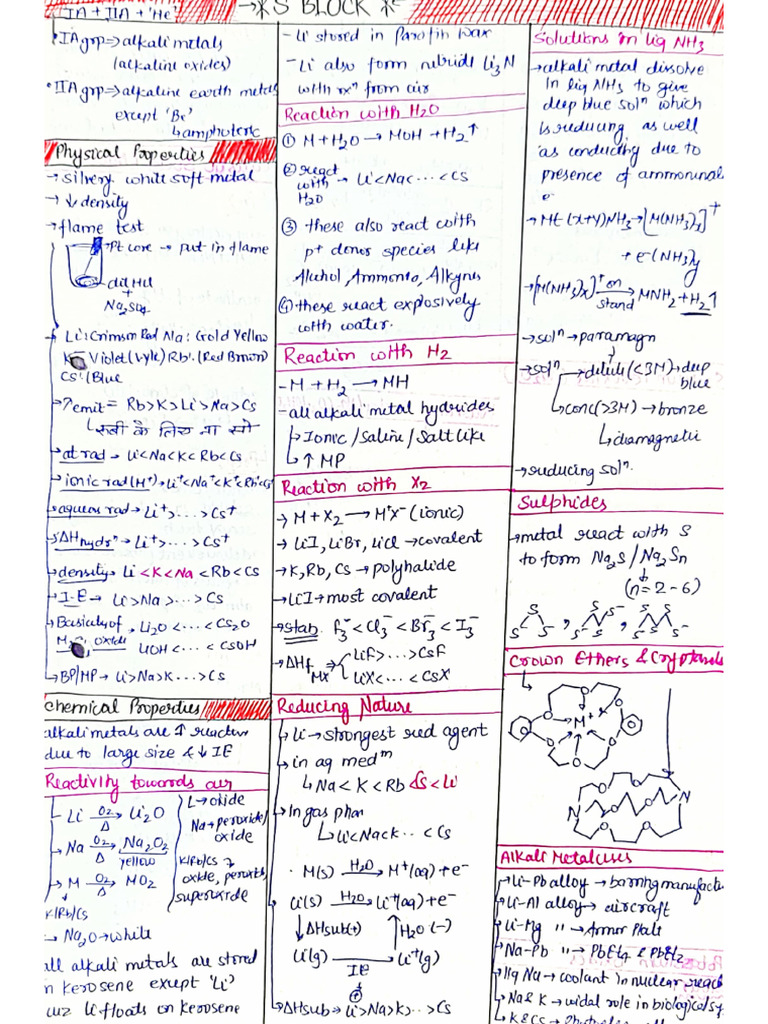 IA + IIA + 'He'
→* S BLOCK *←
• IA grp => alkali metals
(alkaline oxides)
• IIA grp => alkaline earth metals
except 'Be'
↳ amphoteric
Physical Properties
→ silvery white soft metal
→ ↓ density
→ flame test
Pt core → put in flame
dil HCl
+
Li: Crimson Red Na: Gold Yellow
K: Violet (Lyle) Rb: (Red Brown)
Cs: (Blue
→ λ emit = Rb>K>Li>Na>Cs
→ at rad → Li<Na<K<Rb<Cs
→ ionic rad (M⁺) → Li⁺<Na⁺<K⁺<Rb⁺<Cs⁺
→ aqueous rad → Li⁺>...>Cs⁺
→ ΔH hydrⁿ → Li⁺>...>Cs⁺
→ density → Li<K<Na<Rb<Cs
→ I.E → Li>Na>...>Cs
→ Basicity of Li₂O <...< Cs₂O
oxide LiOH <...< CsOH
→ BP/MP → Li>Na>K...>Cs
Chemical Properties
alkali metals are ↑ reactive
due to large size & ↓ IE
Reactivity towards air
- Li O₂/Δ → Li₂O
→ Na O₂/Δ → Na₂O₂
yellow
→ M O₂/Δ → MO₂
K/Rb/Cs
L → oxide
Na → peroxide/
oxide
K/Rb/Cs →
oxide, peroxide
superoxide
→ Na₂O → white
all alkali metals are stored
in kerosene except 'Li'
cuz Li floats on kerosene
- Li stored in Parafin wax
- Li also form nitride Li₃N
with rxⁿ from air
Reaction with H₂O
① M + H₂O → MOH + H₂↑
② react
with → Li<Na<...<Cs
H₂O
③ these also react with
p⁺ donor species like
Alcohol, Ammonia, Alkynes
④ these react explosively
with water.
Reaction with H₂
- M + H₂ → MH
- all alkali metal hydrides
↳ Ionic / Saline / Salt like
↳ ↑ MP
Reaction with X₂
→ M + X₂ → M⁺X⁻ (ionic)
→ LiI, LiBr, LiCl → covalent
→ K, Rb, Cs → polyhalide
→ LiI → most covalent
→ stab. F₃⁻<Cl₃⁻<Br₃⁻<I₃⁻
→ ΔHf MX → LiF>...>CsF
LiX<...<CsX
Reducing Nature
→ Li → strongest red agent
→ in aq medᵐ
↳ Na<K<Rb<Cs<Li
→ In gas phan
↳ Li<Na<K...<Cs
· M(s) H₂O → M⁺(aq) + e⁻
Li(s) H₂O → Li⁺(aq) + e⁻
↓ ΔHsub(+) ↑ H₂O (-)
Li(g) → Li⁺(g)
IE
⊕
→ ΔHsub → Li>Na>K>...>Cs
Solutions in liq NH₃
→ alkali metal dissolve
in liq NH₃ to give
deep blue solⁿ which
is reducing as well
as conducting due to
presence of ammoniated
e⁻
→ M + (x+y)NH₃ → [M(NH₃)x]⁺
+ e⁻(NH₃)y
→ [M(NH₃)x]⁺ on stand → MNH₂ + H₂↑
→ solⁿ → paramagn
→ solⁿ → dilute (<3M) → deep
blue
↳ conc (>3M) → bronze
↳ diamagnetic
→ reducing solⁿ.
Sulphides
→ metal react with S
to form Na₂S / Na₂Sn
(n = 2 - 6)
S S⁻ S⁻, S S S⁻ S⁻, S S S⁻ S⁻
Crown Ethers & Cryptands
O O O M⁺ O O O
O O N N O O O O
Alkali Metal uses
→ Li-Pb alloy → barning manufactu
→ Li-Al alloy → aircraft
→ Li-Mg " → Armor Plate
→ Na-Pb " → PbEt₄ & PbEt₂
→ liq Na → coolant in nuclear reac
→ Na & K → vidal role in biological sy
→ K & Cs →